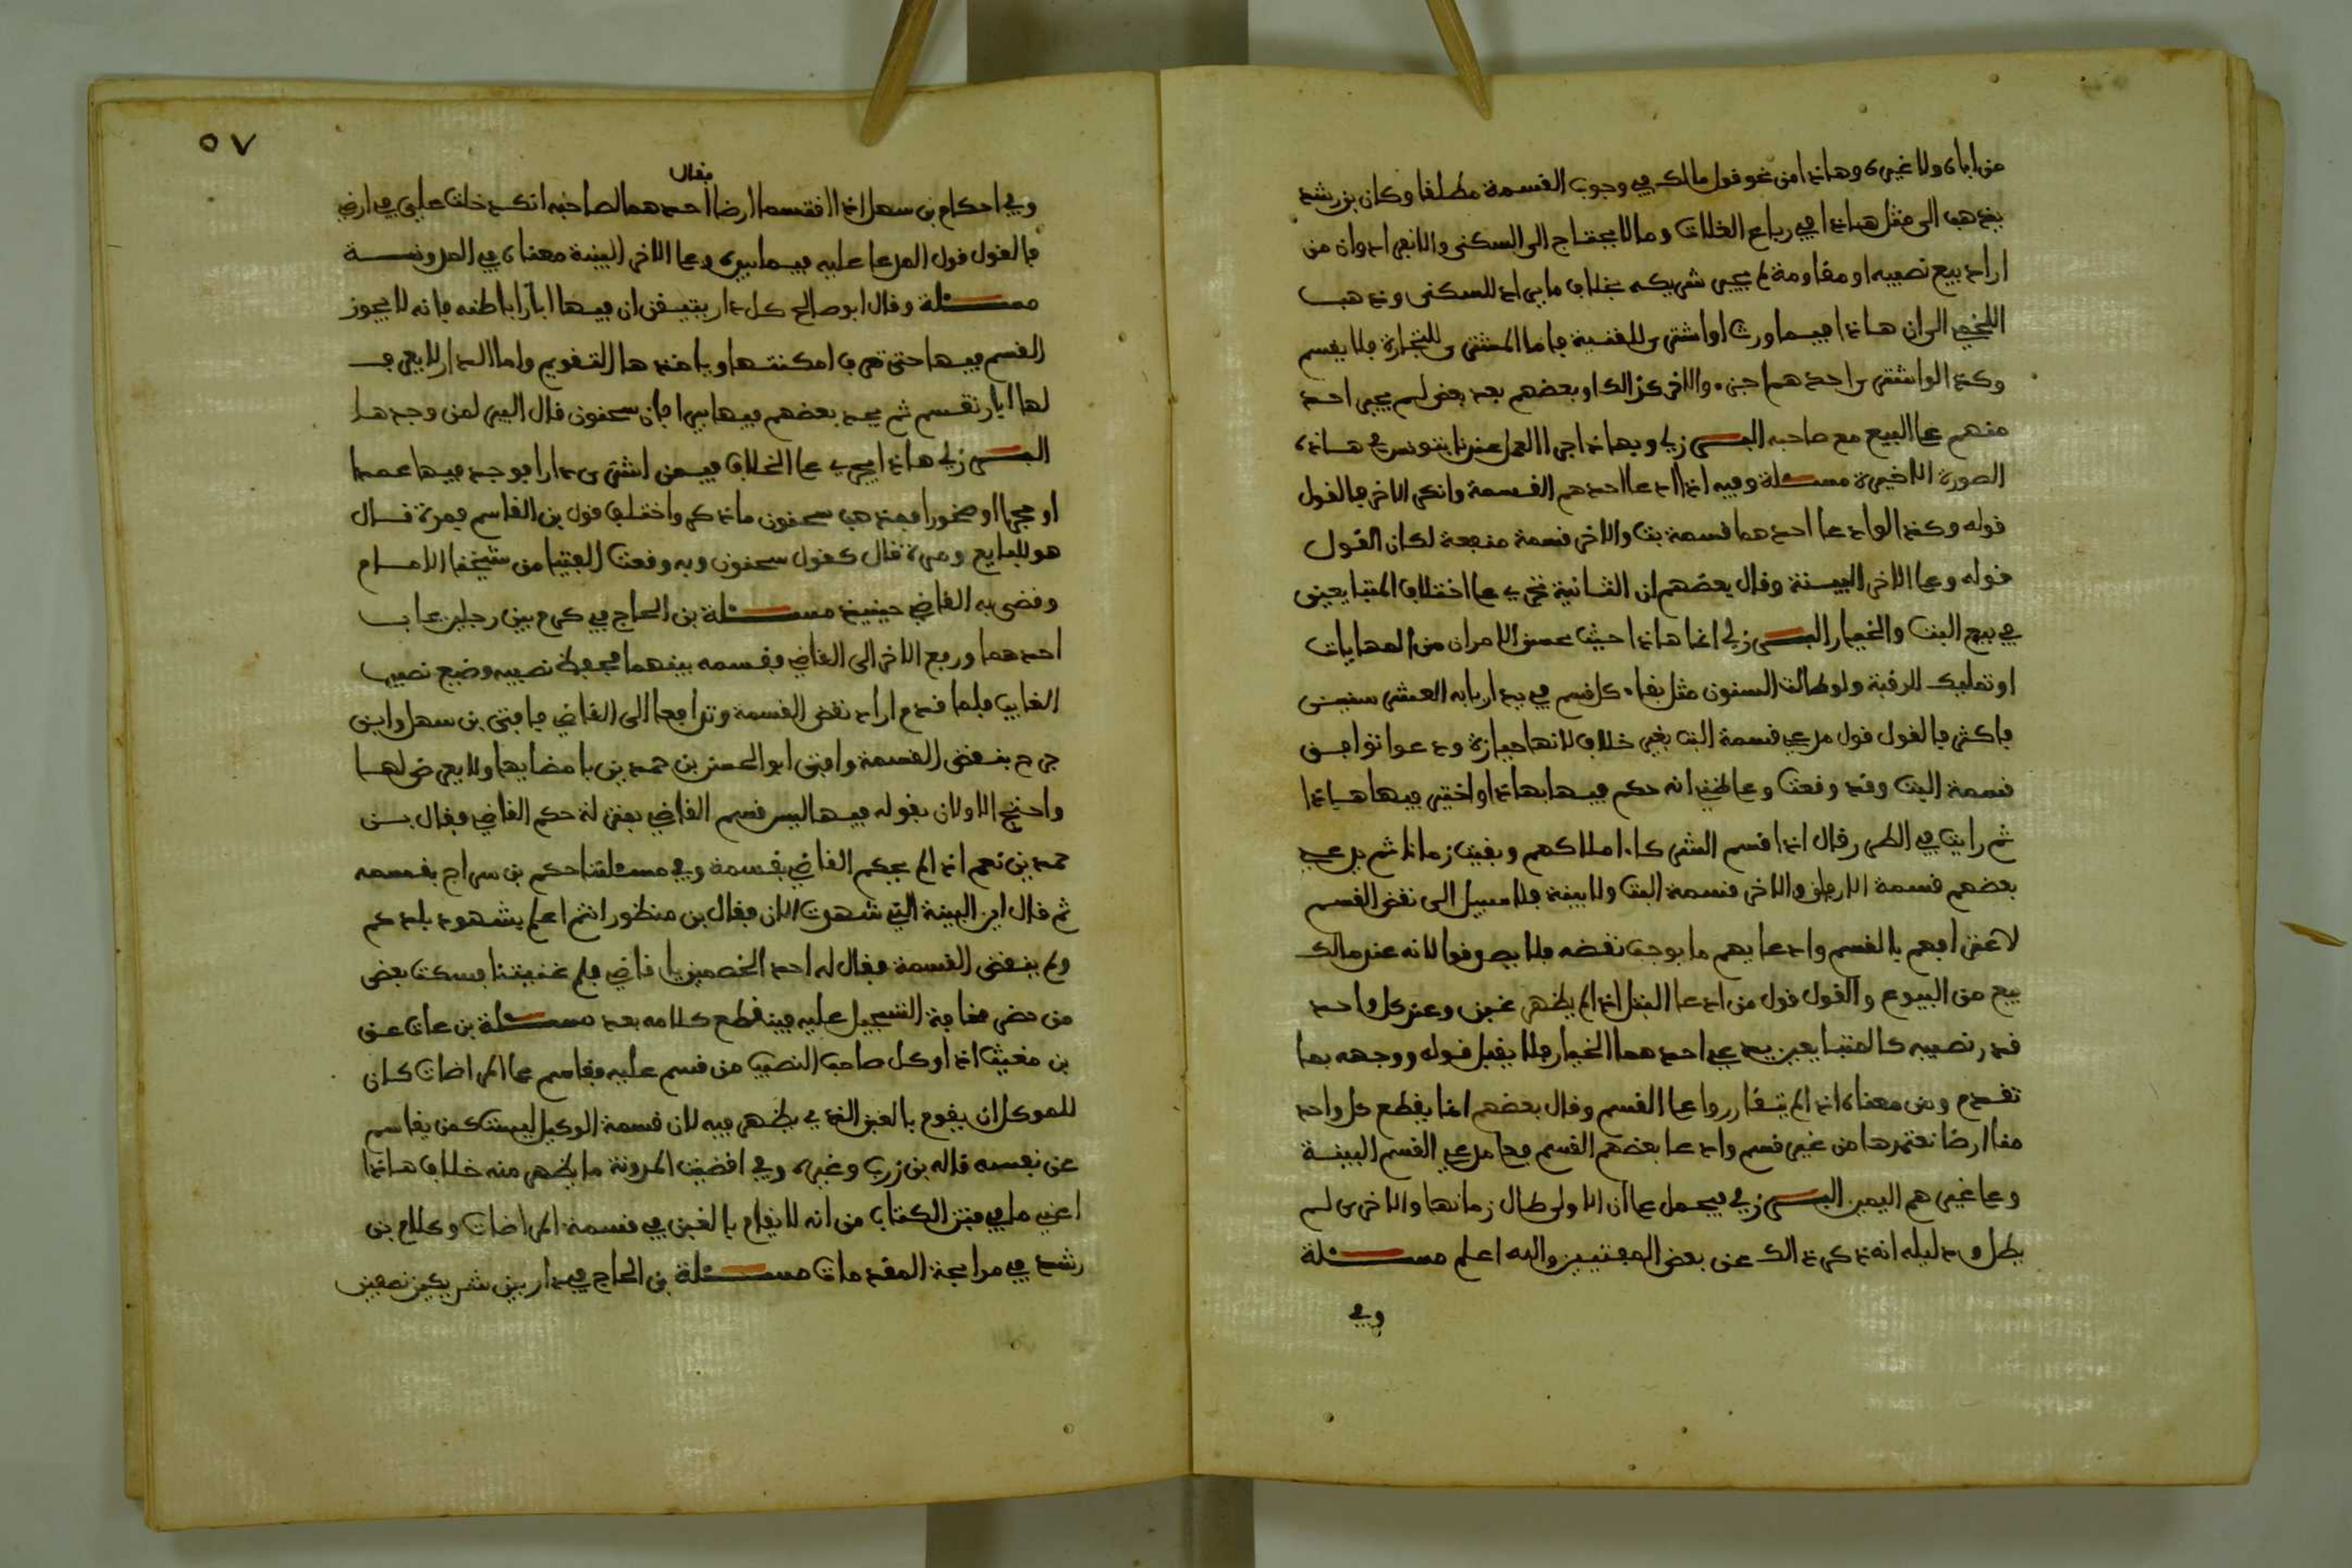 من اباه ولا غيره وهاذا من نحو قول مالك في وجوب القسمة مطلقا وكان بن رشد
يذهب الى مثل هاذا في رباع الغلات وما لا يحتاج الى السكنى والانفراد وان من
اراد بيع نصيبه او مقاومة لم يجبر شريكه بخلاف ما يراد للسكنى وذهب
اللخمي الى ان هاذا فيما ورث او اشترى للقنية فاما المشترى للتجارة فلا يقسم
وكذا لو اشترى احدهم اجزء والاخر كذالك او بعضهم بعد بعض لم يجبر احد
منهم على البيع مع صاحبه البرزلي وبهاذا جرا العمل عندنا بتونس في هاذه
الصورة الاخيرة مسئلة وفيه اذا ادعا احدهم القسمة وانكر الاخر فالقول
قوله وكذا لو ادعا احدهما قسمة بت والاخر قسمة منفعة لكان القول
قوله وعلى الاخر البينة وقال بعضهم ان الثانية تجري على اختلاف المتبايعين
في بيع البت والخيار البرزلي انما هاذا حيث يحسن الامران من المهايات
او تمليك الرقبة ولو طالت السنون مثل بقاء كل قسم في يد اربابه العشر سنين
فاكثر فالقول قول مدعي قسمة البت بغير خلاف لانها حيازة ودعوا توافق
قسمة البت وقد وقعت وعلى ظني انه حكم فيها بهاذا واختير فيها هاذا
ثم رايت في الطرر قال اذا قسم الشركاء املاكهم وبقيت زمانا ثم يدعي
بعضهم قسمة الارفاق والاخر قسمة البت ولا بينة فلا سبيل الى نقض القسم
لاعترافهم بالقسم وادعايهم ما يوجب نقضه فلا يصدقوا لانه عند مالك
بيع من البيوع والقول قول من ادعا البتل اذا لم يظهر غبن وعند كل واحد
قدر نصيبه كالمتبايعين يدعي احدهما الخيار فلا يقبل قوله ووجهه بما
تقدم ومن معناه اذا لم يتقارروا على القسم وقال بعضهم انما يقطع كل واحد
منا ارضا نعتمرها من غير قسم وادعا بعضهم القسم فعلى مدعي القسم البينة
وعلى غيرهم اليمين البرزلي فيحمل على ان الاولى طال زمانها والاخرى لم
يطل ودليله انه ذكر ذالك عن بعض المفتيين والله اعلم مسئلة
وفي
٥٧
فقال
وفي احكام بن سهل اذا اقتسما ارضا احدهما لصاحبه انك دخلت علي في ارضي
فالقول قول المدعا عليه فيما بيده وعلى الاخر البينة معناه في المدونة
مسئلة وقال ابو صالح كل دار يتيقن ان فيها ابارا باطنه فانه لا يجوز
القسم فيها حتى تعرف امكنتها وياخذها التقويم واما الدار لا يعرف
لها ابار تقسم ثم يجد بعضهم فيها بيرا فان سحنون قال البير لمن وجدها
البرزلي هاذا يجري على الخلاف فيمن اشترى دارا فوجد فيها عمدا
او حجرا او صخورا فمذهب سحنون ما ذكر واختلف قول بن القاسم فمرة قال
هو للبايع ومرة قال كقول سحنون وبه وقعت الفتيا من شيخنا الامام
وقضى به القاضي حينيذ مسئلة بن الحاج في كرم بين رجلين غاب
احدهما ورفع الاخر الى القاضي وقسمه بينهما فحفظ نصيبه وضيع نصيب
الغايب فلما قدم اراد نقض القسمة وترافعا الى القاضي فافتى بن سهل وابن
جرح بنقض القسمة وافتى ابو الحسن بن حمدين بامضايها ولا يعرض لها
واحتج الاولان بقوله فيها ليس قسم القاضي بمنزلة حكم القاضي فقال بن
حمدين نعم اذا لم يحكم القاضي بقسمه وفي مسئلتنا حكم بن سراج بقسمه
ثم قال اين البينة التي شهدت الان فقال بن منظور انتم اعلم بشهود بلدكم
ولم ينقض القسمة فقال له احد الخصمين يا قاضي فلم عنيتنا فسكت بعض
من حضر مخافة التسجيل عليه فينقطع كلامه بعد مسئلة بن عات عن
بن مغيث اذا وكل صاحب النصيب من قسم عليه فقاسم على المراضات كان
للموكل ان يقوم بالغبن الذي يظهر فيه لان قسمة الوكيل ليست كمن يقاسم
عن نفسه قاله بن زرب وغيره وفي اقضية المدونة ما يظهر منه خلاف هاذا
اعني ما في متن الكتاب من انه لا يقام بالغبن في قسمة المراضات وكلام بن
رشد في مرابحة المقدمات مسئلة بن الحاج في دار بين شريكين نصفين